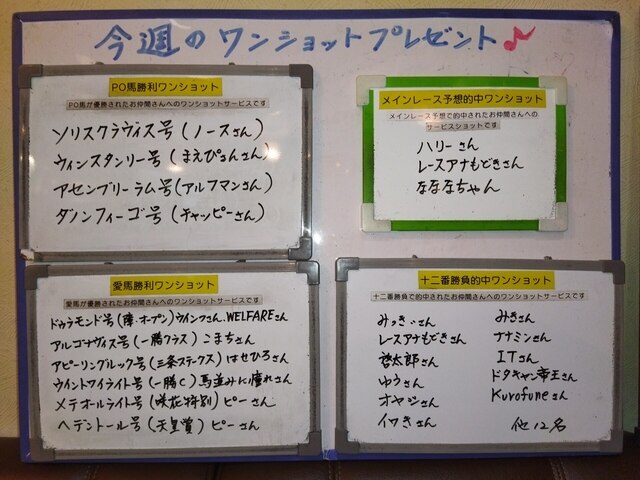 今週のワンショットプレゼント♪
PO馬勝利ワンショット
PO馬が優勝されたお仲間さんへのワンショットサービスです
ソリスクラヴィス号(ノースさん)
ウィンスタンリー号(まえぴょんさん)
アセンブリーラム号(アルフマンさん)
ダノンフィーゴ号(チャッピーさん)
メインレース予想的中ワンショット
メインレース予想で的中されたお仲間さんへの
サービスショットです
ハリーさん
レースアナもどきさん
なななちゃん
愛馬勝利ワンショット
愛馬が優勝されたお仲間さんへのワンショットサービスです
ドゥラモンド号(障・オープン)ウインフさん.WELFAREさん
アルゴナヴィス号(一勝クラス)こまちさん
アピーリングルック号(三条ステークス)はせひろさん
ウイントワイライト号(一勝C)馬並みに憧れさん
メテオールライト号(咲花特別)ピーさん
ヘデントール号(天皇賞)ピーさん
十二番勝負的中ワンショット
十二番勝負で的中されたお仲間さんへのワンショットサービスです
みっきぃさん
レースアナもどきさん
啓太郎さん
ゆうさん
オヤジさん
イワきさん
みきさん
ナナミンさん
ITさん
ドタキャン帝王さん
Kurofuneさん
他12名